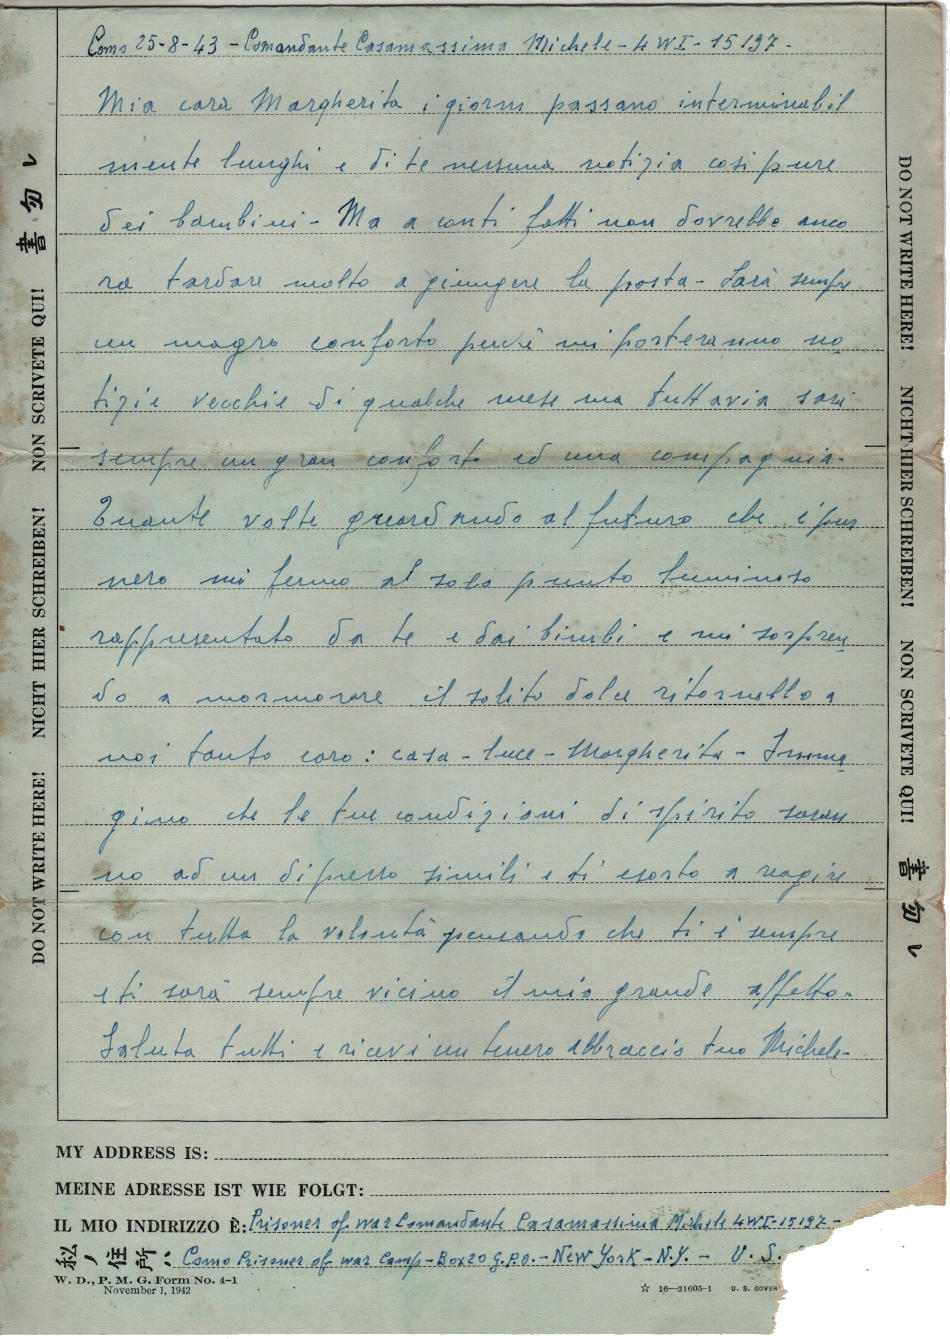 Como 25-8-43 - Comandante Casamassima Michele - 4WI - 15197 -
Mia cara Margherita i giorni passano interminabil
mente lunghi e di te nessuna notizia così pure
dei bambini - Ma a conti fatti non dovrebbe anco
ra tardare molto a giungere la posta - Sarà sempre
un magro conforto perché mi porteranno no
tizie vecchie di qualche mese ma tuttavia sarà
sempre un gran conforto ed una compagnia.
Quante volte guardando al futuro che è pur
nero mi fermo al solo punto luminoso
rappresentato da te e dai bimbi e mi sorpren
do a mormorare il solito dolce ritornello a
noi tanto caro: casa - luce - Margherita - Imma
gino che le tue condizioni di spirito saran
no ad un dipresso simili e ti esorto a reagire
con tutta la volontà pensando che ti è sempre
e ti sarà sempre vicino il mio grande affetto -
Saluta tutti e ricevi un tenero abbraccio tuo Michele -
DO NOT WRITE HERE! NICHT HIER SCHREIBEN! NON SCRIVETE QUI! 書勿レ
DO NOT WRITE HERE! NICHT HIER SCHREIBEN! NON SCRIVETE QUI! 書勿レ
MY ADDRESS IS:
MEINE ADRESSE IST WIE FOLGT:
IL MIO INDIRIZZO È: Prisoner of war Comandante Casamassima Michele 4WI-15197 -
私ノ住所: Como Prisoner of war Camp - Box 20 G.P.O. - New York - N.Y. - U.S.
W. D., P. M. G. Form No. 4-1
November 1, 1942
☆ 16—31605-1 U. S. GOVER